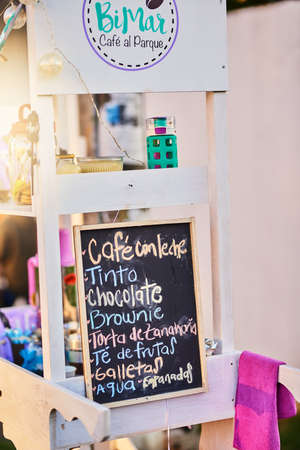 BiMar
Café al Parque
-Café con leche
-Tinto
-Chocolate
-Brownie
-Torta de Zanahoria
-Te de frutas
-Galletas
-AGUA -Empanadas